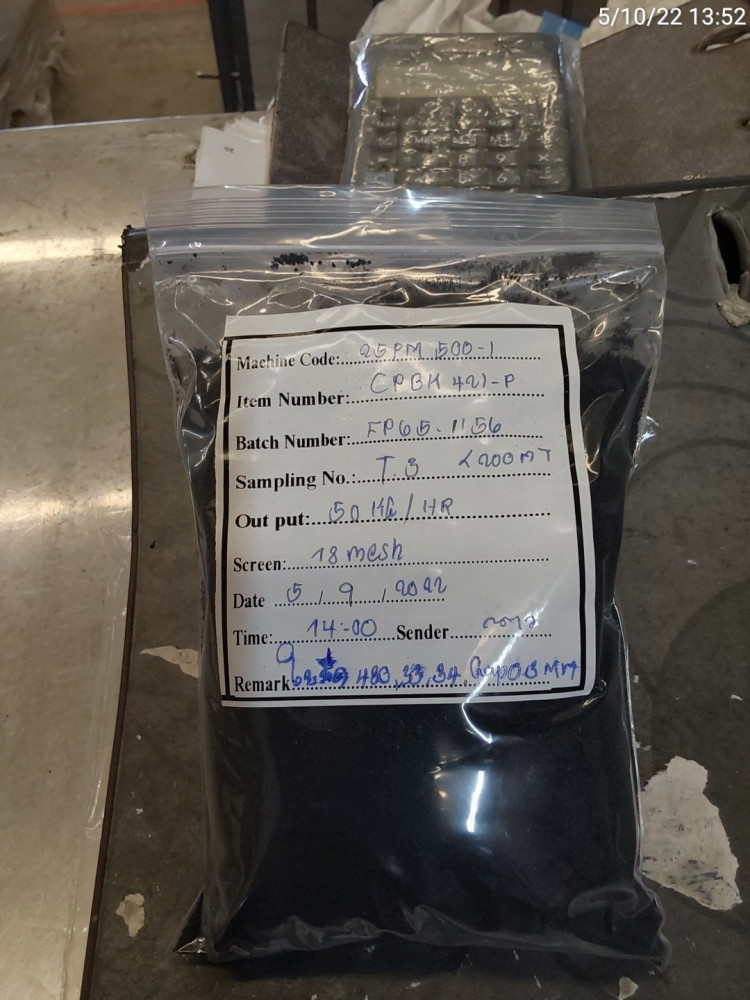 5/10/22 13:52
Machine Code: 25PM 500-1
Item Number: CPBK 421-P
Batch Number: FP65-1156
Sampling No.: T.3
Out put: 50 KG/HR
Screen: 18 mesh
Date 5, 9, 2022
Time: 14-00 Sender
Remark: 480, 33, 34, Gap 0.3 MM